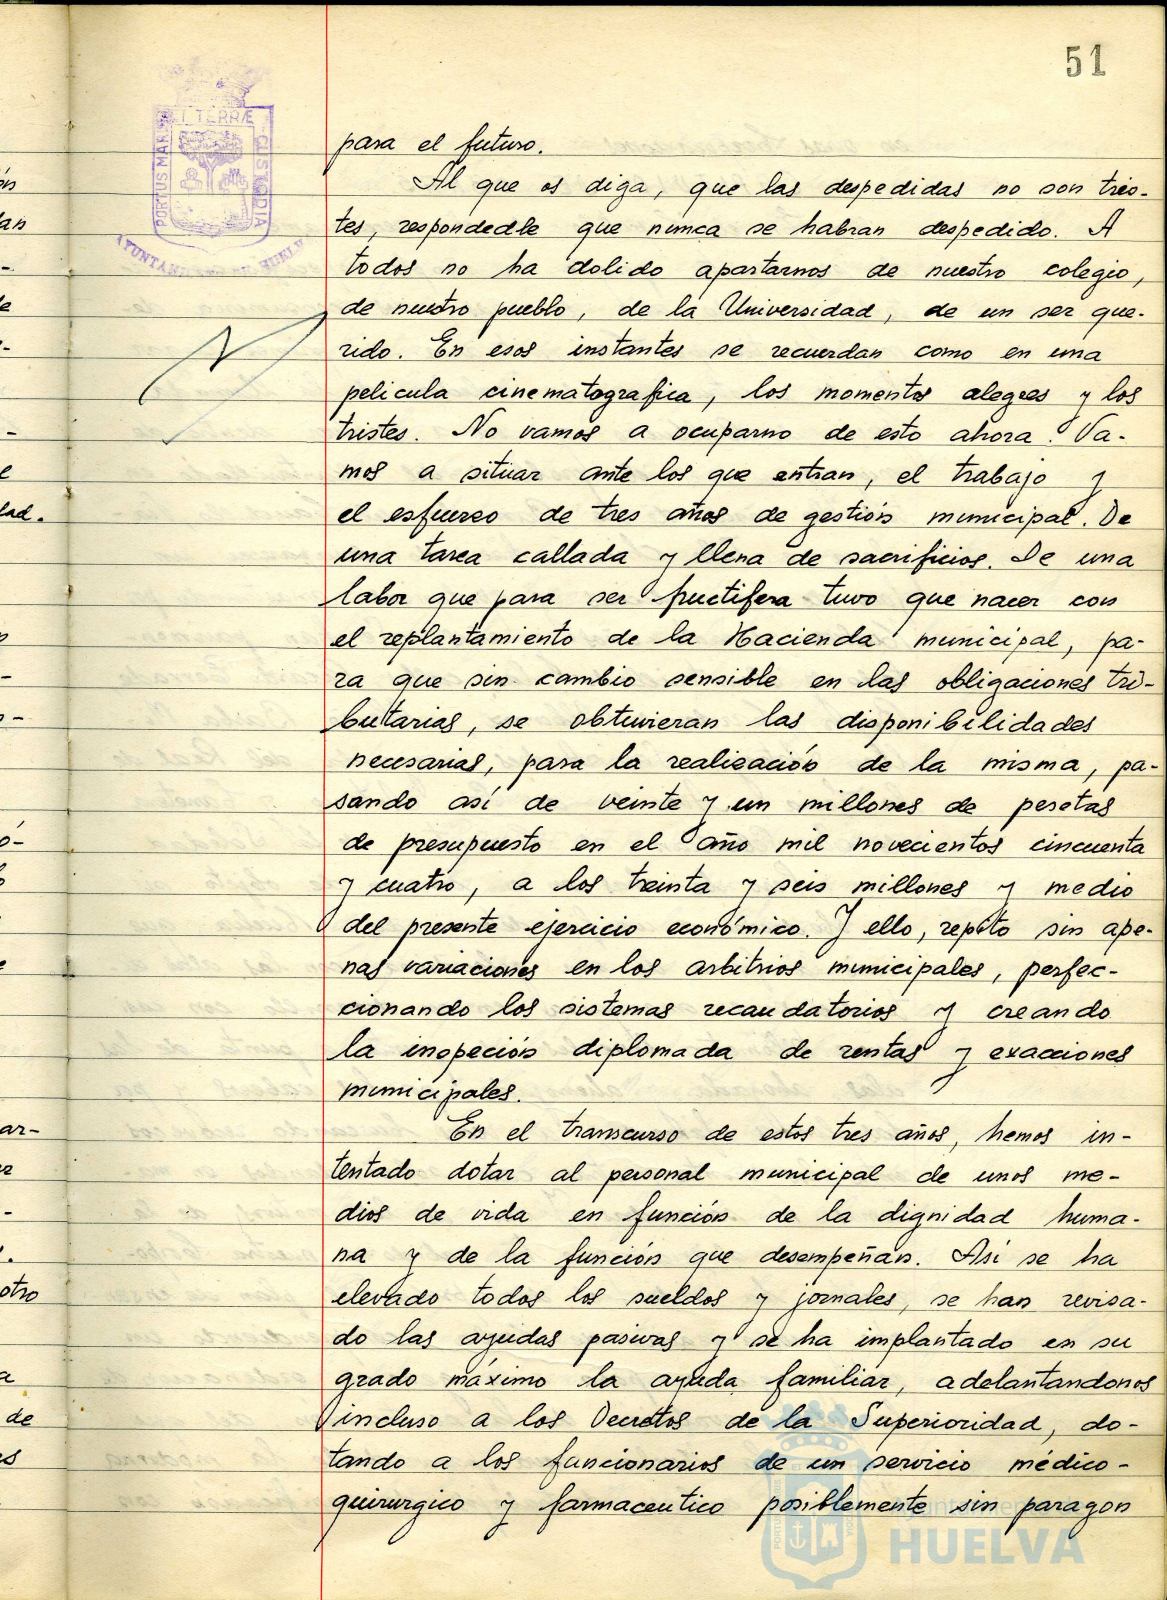 51
PORTUS MARIS ET TERRÆ CUSTODIA
AYUNTAMIENTO DE HUELVA
para el futuro.
Al que os diga, que las despedidas no son tris-
tes, respondedle que nunca se habran despedido. A
todos no ha dolido apartarnos de nuestro colegio,
de nuestro pueblo, de la Universidad, de un ser que-
rido. En esos instantes se recuerdan como en una
pelicula cinematografica, los momentos alegres y los
tristes. No vamos a ocuparno de esto ahora. Va-
mos a situar ante los que entran, el trabajo y
el esfuerzo de tres años de gestión municipal. De
una tarea callada y llena de sacrificios. De una
labor que para ser fructifera tuvo que nacer con
el replantamiento de la Hacienda municipal, pa-
ra que sin cambio sensible en las obligaciones tri-
butarias, se obtuvieran las disponibilidades
necesarias, para la realización de la misma, pa-
sando asi de veinte y un millones de pesetas
de presupuesto en el año mil novecientos cincuenta
y cuatro, a los treinta y seis millones y medio
del presente ejercicio económico. Y ello, repito sin ape-
nas variaciones en los arbitrios municipales, perfec-
cionando los sistemas recaudatorios y creando
la inspeción diplomada de rentas y exacciones
municipales.
En el transcurso de estos tres años, hemos in-
tentado dotar al personal municipal de unos me-
dios de vida en función de la dignidad huma-
na y de la función que desempeñan. Asi se ha
elevado todos los sueldos y jornales, se han revisa-
do las ayudas pasivas y se ha implantado en su
grado máximo la ayuda familiar, adelantandonos
incluso a los Decretos de la Superioridad, do-
tando a los funcionarios de un servicio médico-
quirurgico y farmaceutico posiblemente sin paragon
HUELVA